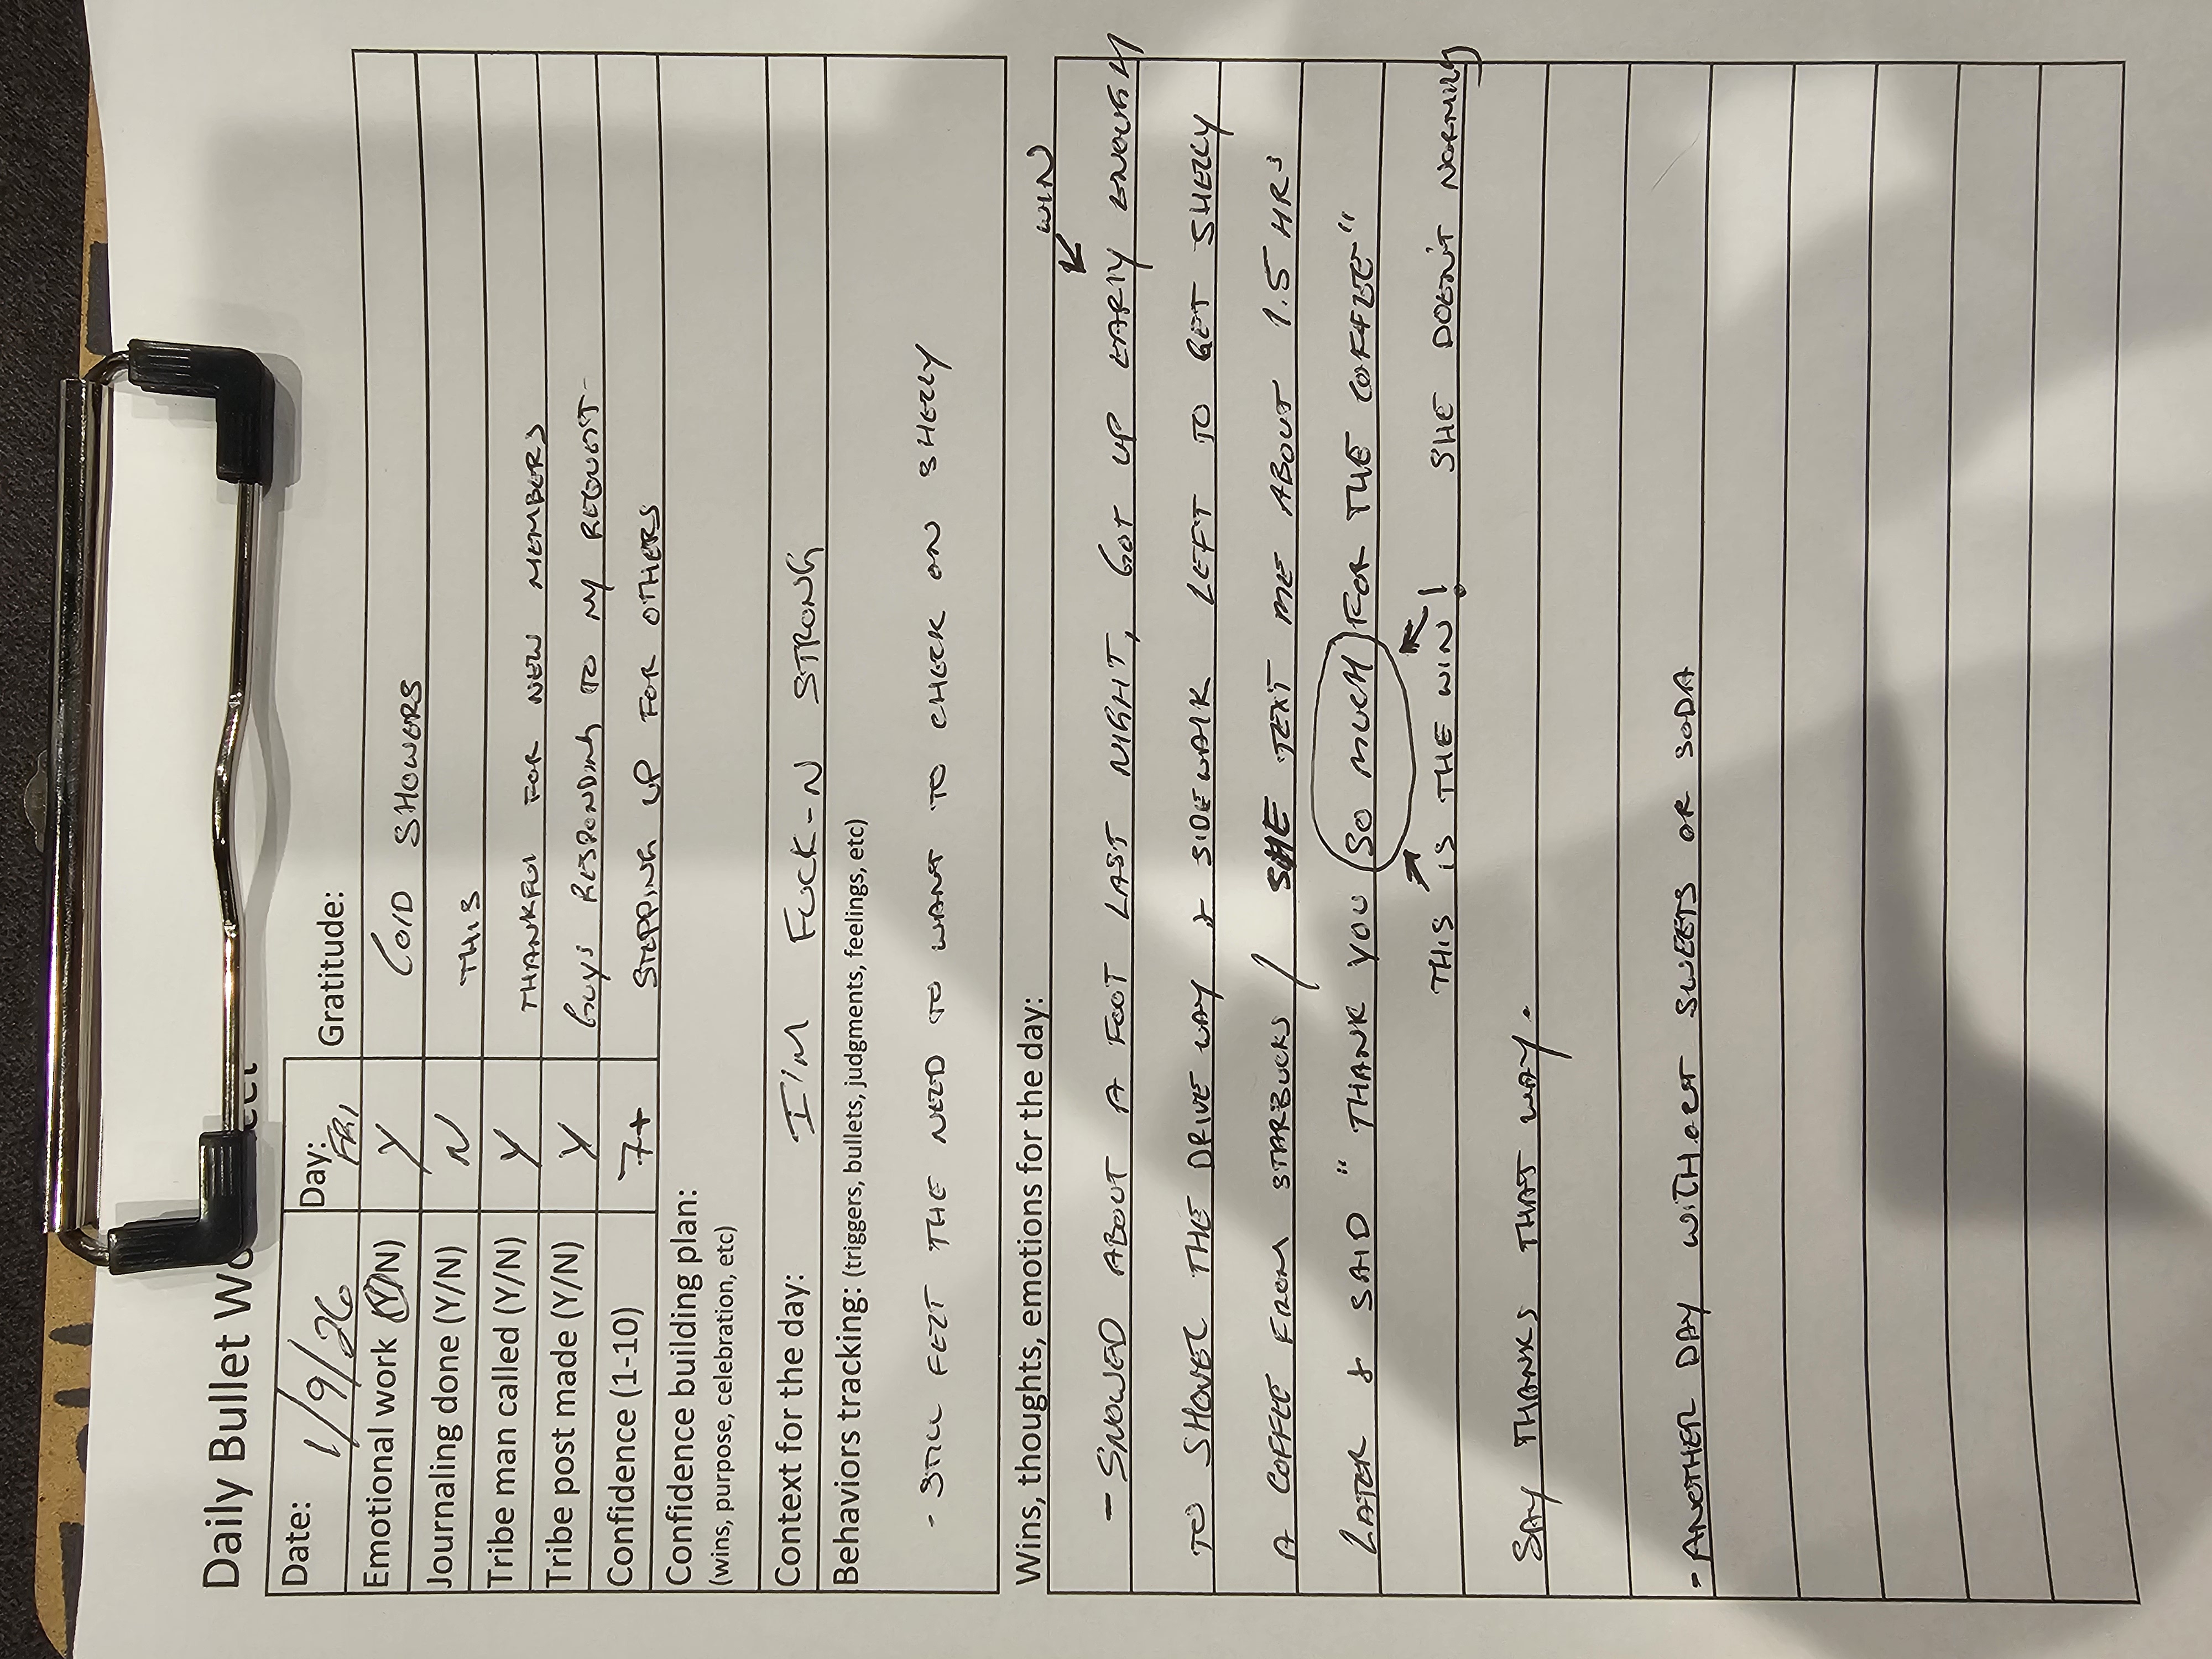 Daily Bullet Wo
Date: 1/9/26 Day: FRI Gratitude:
Emotional work (Y/N) Y COLD SHOWERS
Journaling done (Y/N) N THIS
Tribe man called (Y/N) Y THANKFUL FOR NEW MEMBERS
Tribe post made (Y/N) Y GUYS RESPONDING TO MY REQUEST
Confidence (1-10) 7+ STEPPING UP FOR OTHERS
Confidence building plan:
(wins, purpose, celebration, etc)
Context for the day: I'M FUCK-N STRONG
Behaviors tracking: (triggers, bullets, judgments, feelings, etc)
- STILL FELT THE NEED TO WANT TO CHECK ON SHELLY
Wins, thoughts, emotions for the day: WIN
- SNOWED ABOUT A FOOT LAST NIGHT, GOT UP EARLY ENOUGH
TO SHOVEL THE DRIVE WAY & SIDEWALK LEFT TO GET SHELLY
A COFFEE FROM STARBUCKS / SHE TEXT ME ABOUT 1.5 HRS
LATER & SAID " THANK YOU SO MUCH FOR THE COFFEE"
THIS IS THE WIN! SHE DOEN'T NORMILY
SAY THANKS THAT WAY.
- ANOTHER DAY WITHOUT SWEETS OR SODA